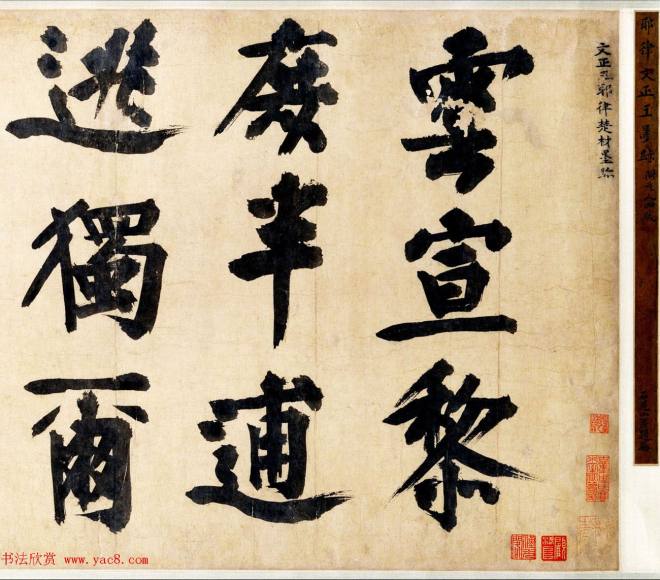 耶律文正王墨跡
文正王耶律楚材墨跡
雲宣黎
庶半逋
逃獨爾
书法欣赏 www.yac8.com